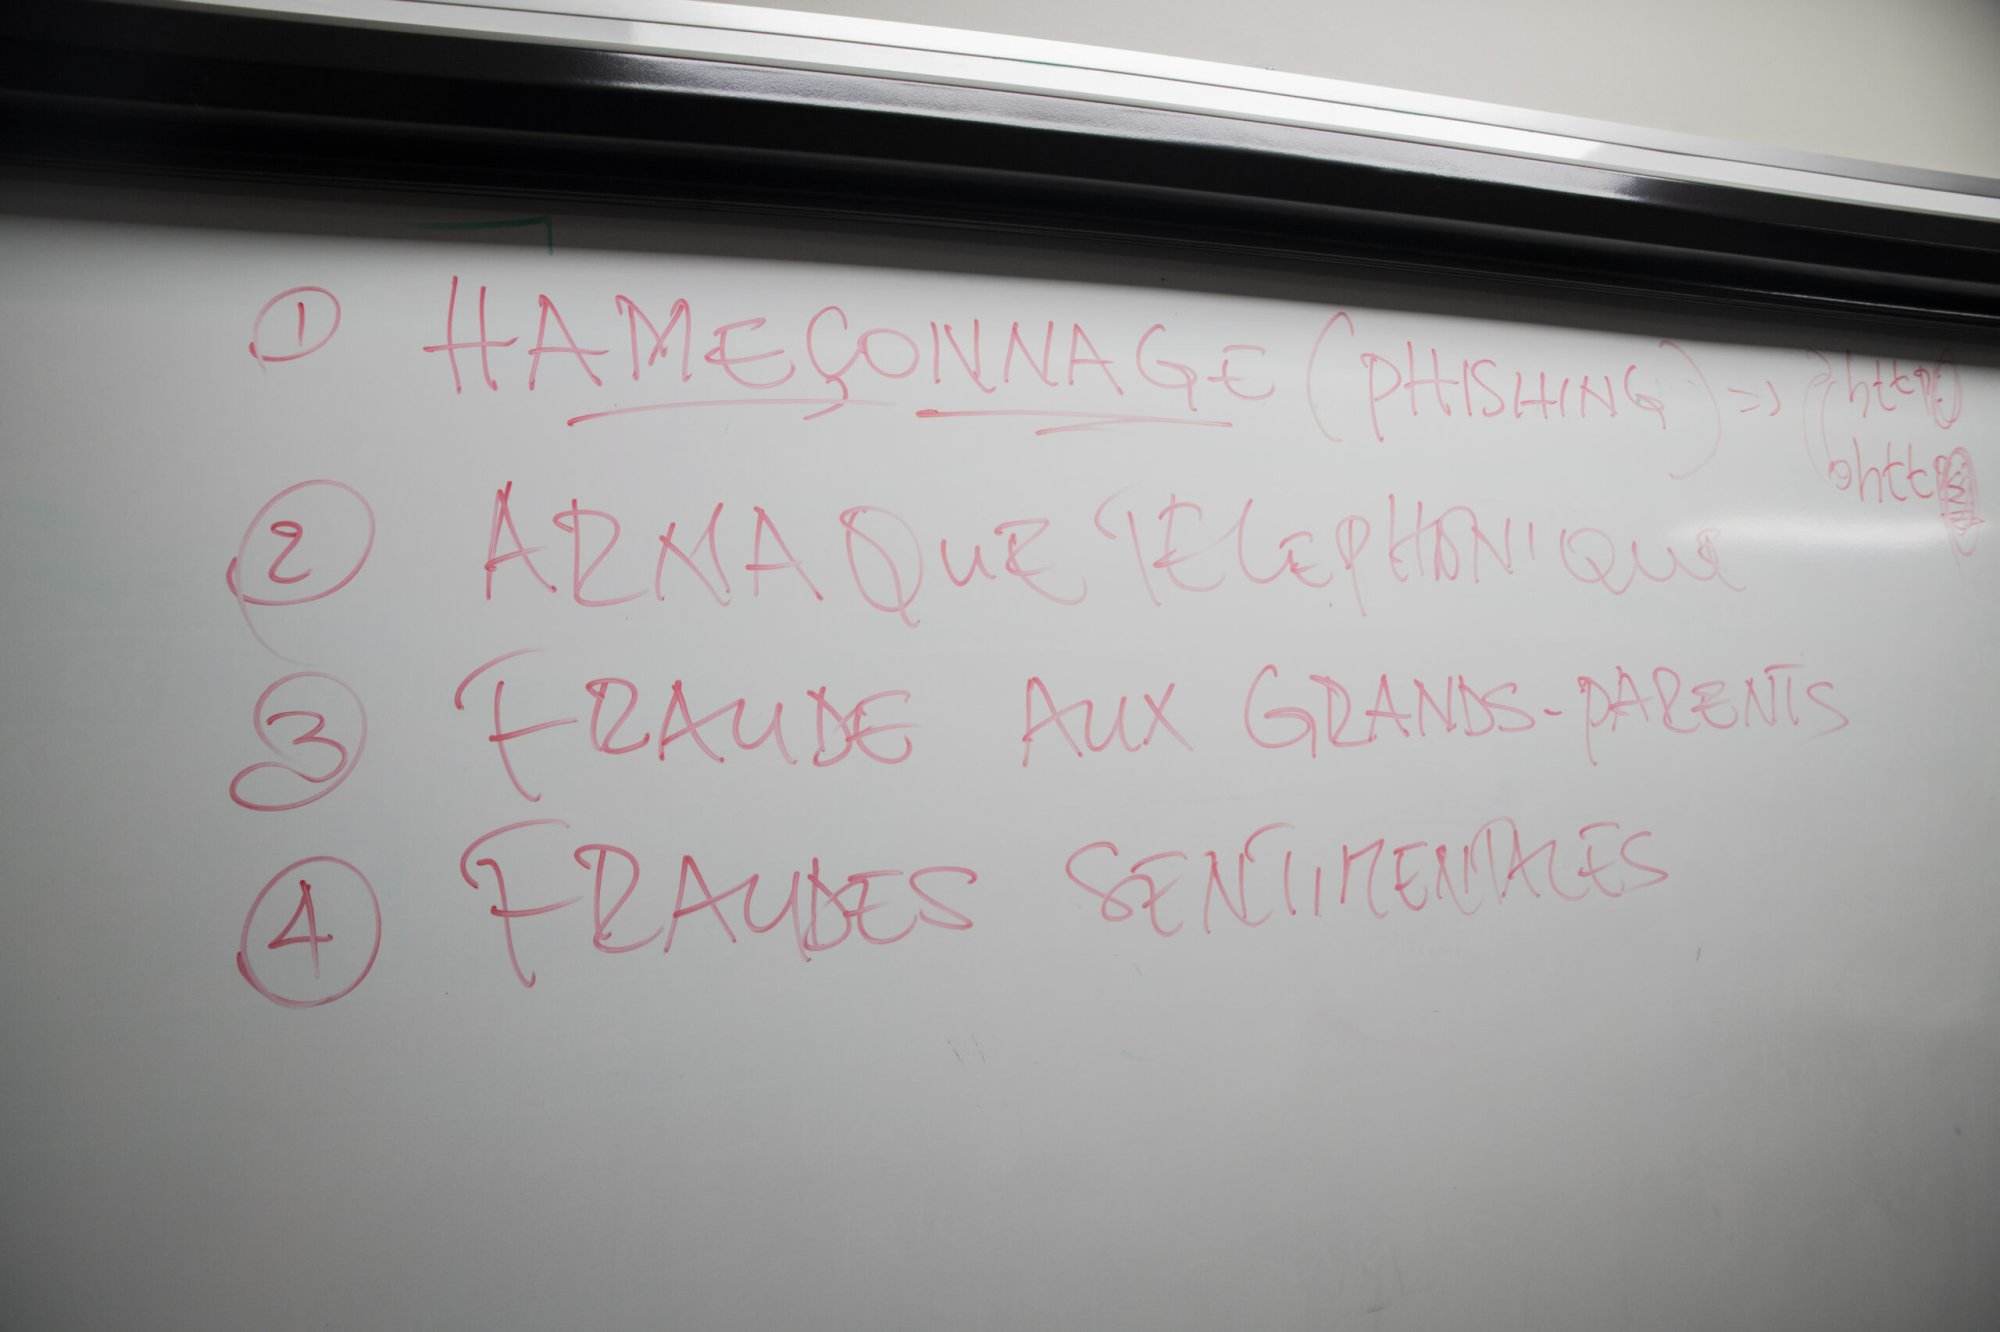 ① HAMEÇONNAGE (PHISHING) => http
http
② ARNAQUE TELEPHONIQUE
③ FRAUDE AUX GRANDS-PARENTS
④ FRAUDES SENTIMENTALES